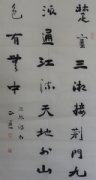 楚塞三湘接荊門九
派通江流天地外山
色有無中